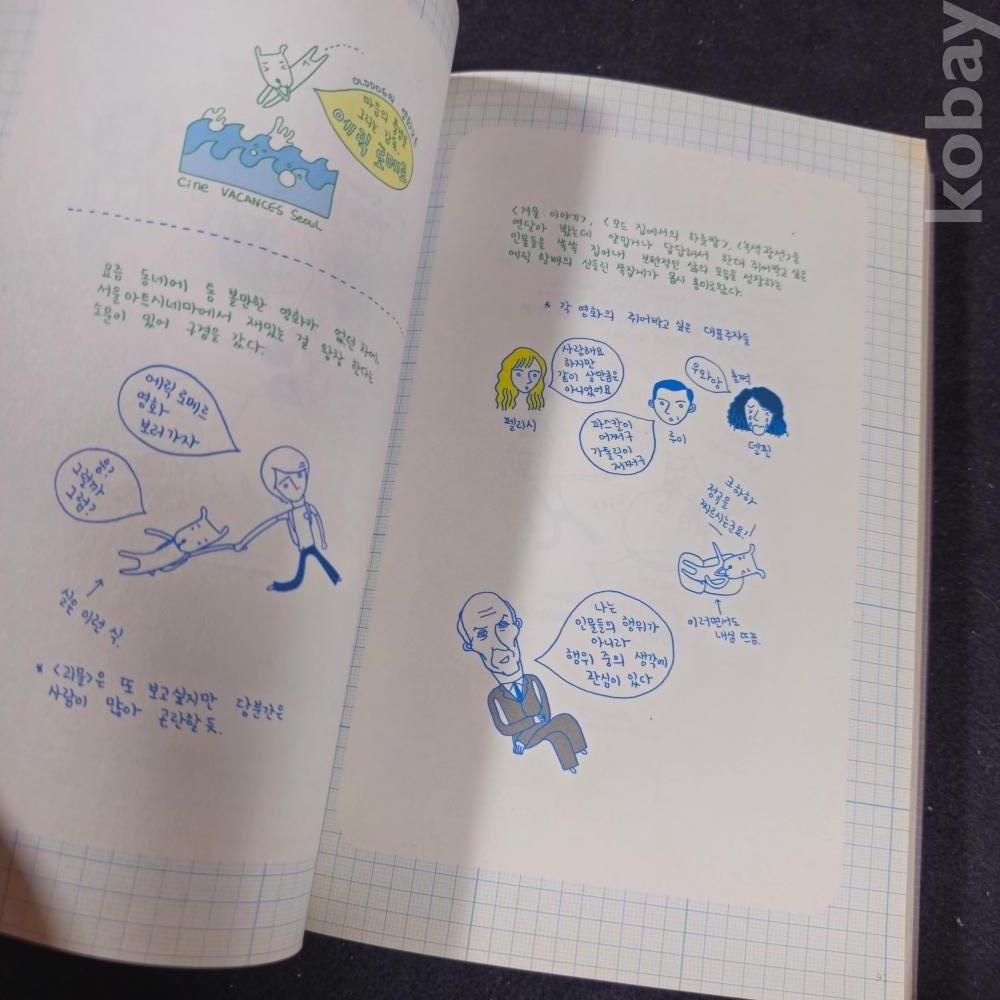 OLDDOG의 영화가는
마음의 풍경을
그리는 감독,
에릭 로메르
Cine VACANCES Seoul
요즘 동네에 통 볼만한 영화가 없던 차에,
서울아트시네마에서 재밌는 걸 왕창 한다는
소문이 있어 구경을 갔다.
에릭 로메르
영화
보러가자
응?
그럴까
그럼?
실은 이런 식.
* <괴물>은 또 보고싶지만 당분간은
사람이 많아 곤란할 듯.
<겨울 이야기>, <모드 집에서의 하룻밤>, <녹색광선>을
연달아 봤는데 얄밉거나 답답해서 한대 쥐어박고 싶은
인물들을 쏙쏙 집어내 보편적인 삶의 모습을 성찰하는
에릭 할배의 신들린 쪽집게가 몹시 흥미로왔다.
* 각 영화의 쥐어박고 싶은 대표주자들
사랑해요
하지만
같이 살만큼은
아니었어요
펠리시
파스칼이
어쩌구
가톨릭이
저쩌구
루이
우와앙
훌쩍
델핀
크하하
정곡을
찌르시는군요!
이러면서도
내심 뜨끔.
나는
인물들의 행위가
아니라
행위 중의 생각에
관심이 있다
kobay